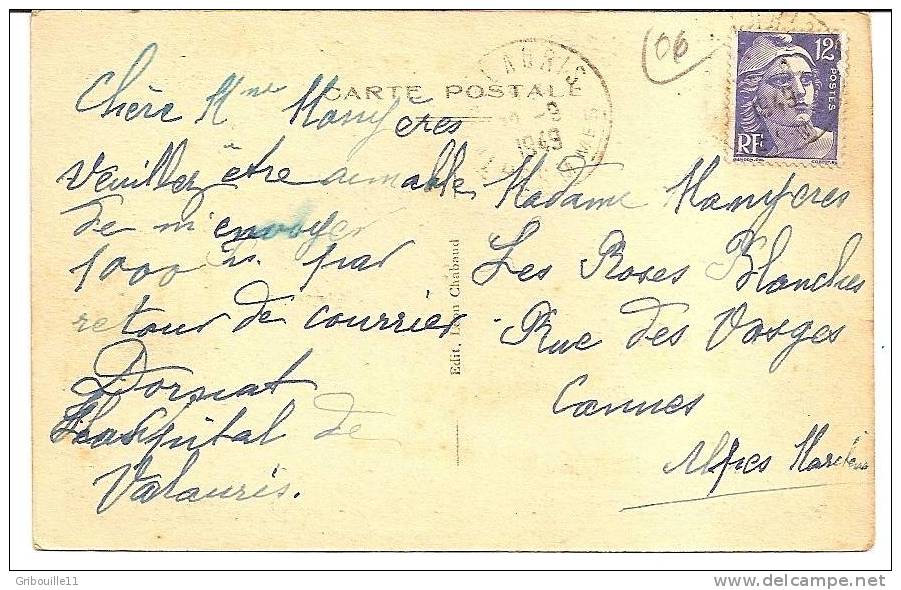 06
12F
POSTES
RF
LAURIS
-9
1949
MES
CARTE POSTALE
Chère Mme Manyères
Veuillez être aimable
de m'envoyer
1000 frs. par
retour de courrier
Dormat
Hospital de
Valauris.
Edit. Léon Chabaud
Madame Manyeres
Les Roses Blanches
Rue des Vosges
Cannes
Alpes Maritimes
Gribouille11
www.delcampe.net